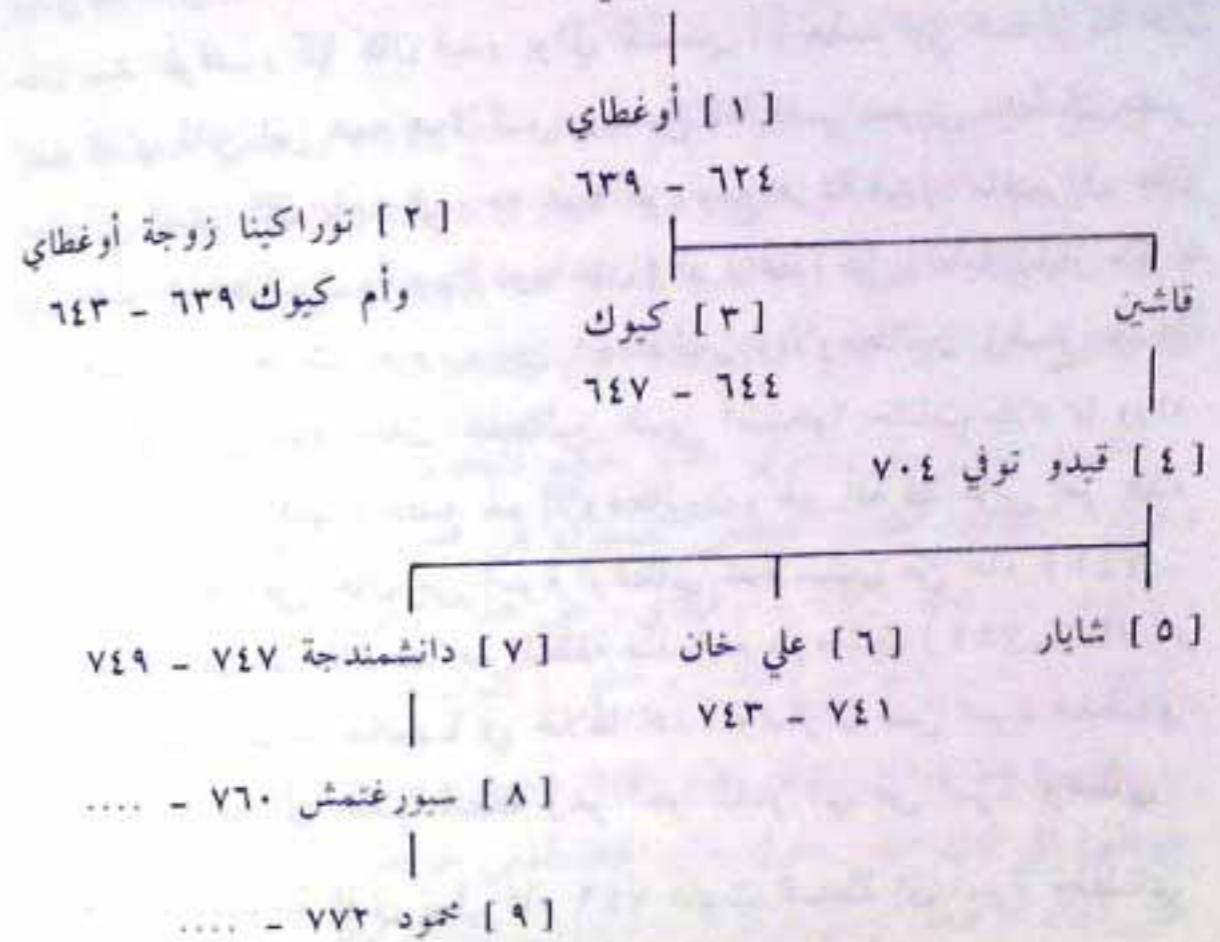 [ ١ ] أوغطاي
٦٢٤ – ٦٣٩
[ ٢ ] توراكينا زوجة أوغطاي
وأم كيوك ٦٣٩ – ٦٤٣
قاشين
[ ٣ ] كيوك
٦٤٤ – ٦٤٧
[ ٤ ] قيدو توفي ٧٠٤
[ ٥ ] شابار
[ ٦ ] علي خان
٧٤١ – ٧٤٣
[ ٧ ] دانشمندجة ٧٤٧ – ٧٤٩
[ ٨ ] سيورغتمش ٧٦٠ – ....
[ ٩ ] محمود ٧٧٢ – ....